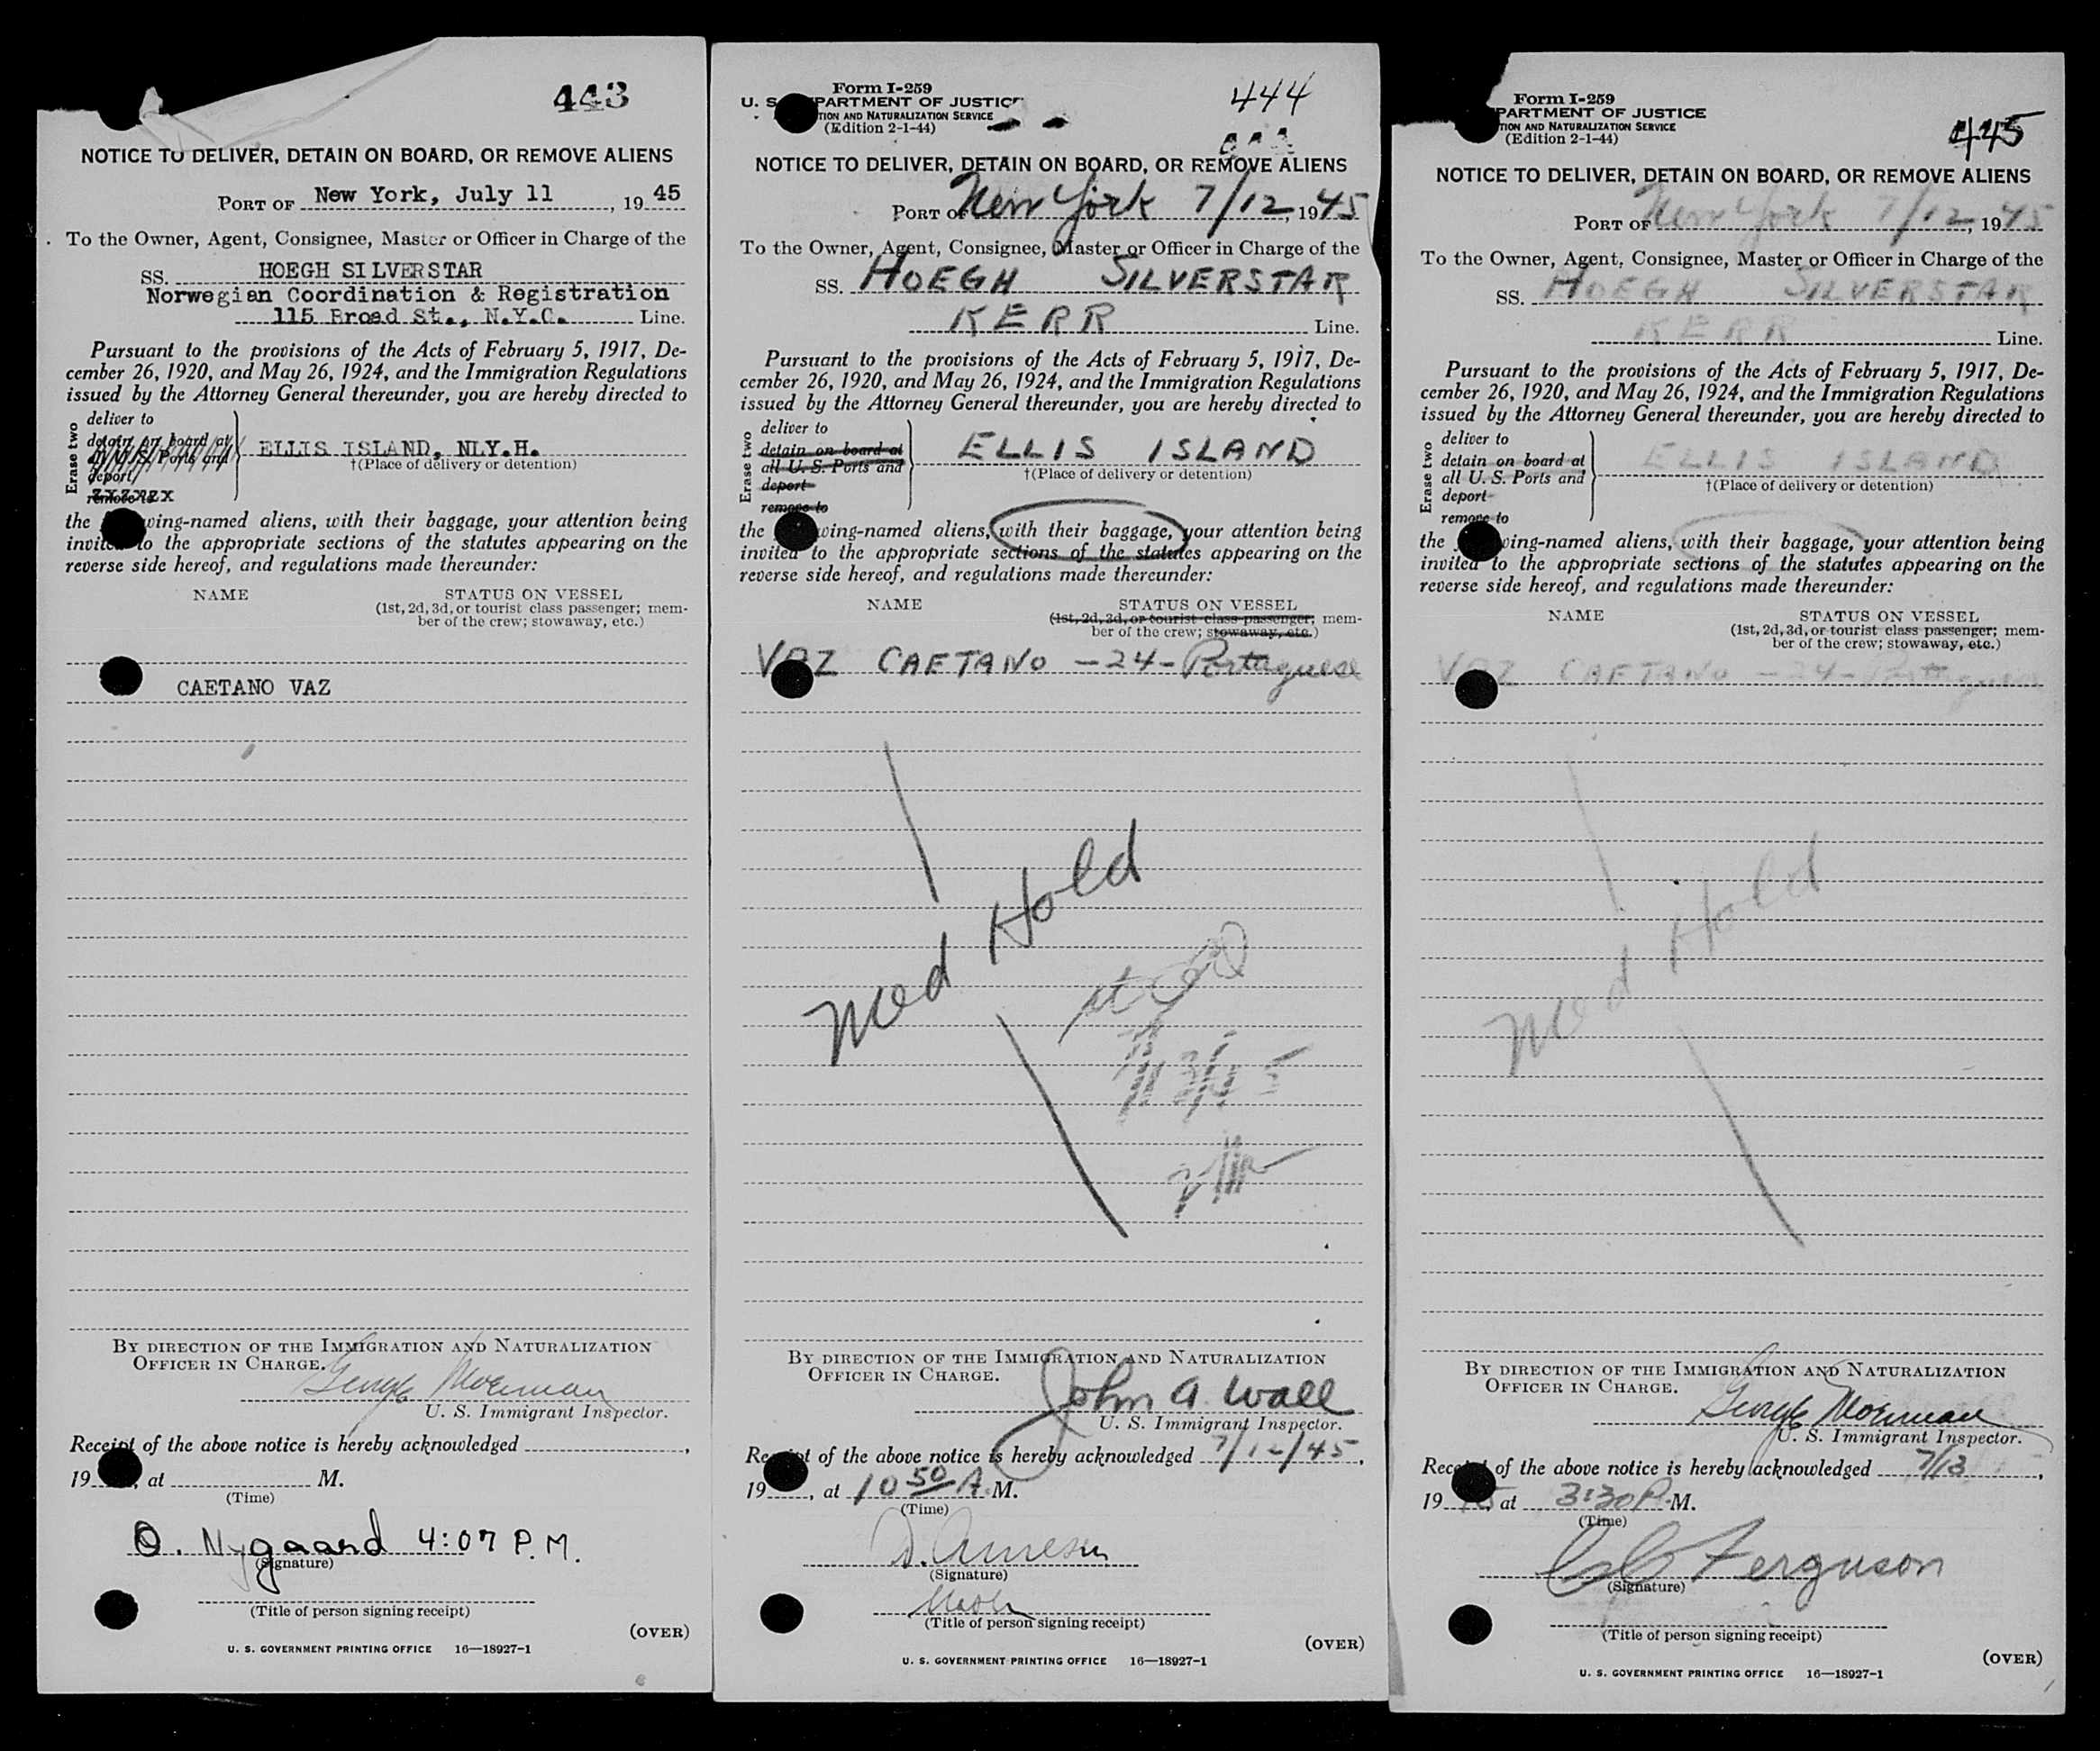 443
NOTICE TO DELIVER, DETAIN ON BOARD, OR REMOVE ALIENS
PORT OF New York, July 11, 19 45
To the Owner, Agent, Consignee, Master or Officer in Charge of the
SS. HOEGH SILVERSTAR
Norwegian Coordination & Registration
115 Broad St., N.Y.C. Line.
Pursuant to the provisions of the Acts of February 5, 1917, De-
cember 26, 1920, and May 26, 1924, and the Immigration Regulations
issued by the Attorney General thereunder, you are hereby directed to
Erase two
deliver to
detain on board at
all U. S. Ports and
deport
remove to
ELLIS ISLAND, NLY.H.
†(Place of delivery or detention)
the wing-named aliens, with their baggage, your attention being
invited to the appropriate sections of the statutes appearing on the
reverse side hereof, and regulations made thereunder:
NAME
STATUS ON VESSEL
(1st, 2d, 3d, or tourist class passenger; mem-
ber of the crew; stowaway, etc.)
CAETANO VAZ
BY DIRECTION OF THE IMMIGRATION AND NATURALIZATION
OFFICER IN CHARGE.
George Moerman
U. S. Immigrant Inspector.
Receipt of the above notice is hereby acknowledged
19 , at M.
(Time)
O. Nygaard 4:07 P.M.
(Signature)
(Title of person signing receipt)
(OVER)
U. S. GOVERNMENT PRINTING OFFICE 16—18927-1
Form I-259
U. S. DEPARTMENT OF JUSTICE
TION AND NATURALIZATION SERVICE
(Edition 2-1-44)
444
NOTICE TO DELIVER, DETAIN ON BOARD, OR REMOVE ALIENS
PORT OF New York 7/12, 1945
To the Owner, Agent, Consignee, Master or Officer in Charge of the
SS. HOEGH SILVERSTAR
KERR Line.
Pursuant to the provisions of the Acts of February 5, 1917, De-
cember 26, 1920, and May 26, 1924, and the Immigration Regulations
issued by the Attorney General thereunder, you are hereby directed to
Erase two
deliver to
detain on board at
all U. S. Ports and
deport
remove to
ELLIS ISLAND
†(Place of delivery or detention)
the wing-named aliens, with their baggage, your attention being
invited to the appropriate sections of the statutes appearing on the
reverse side hereof, and regulations made thereunder:
NAME
STATUS ON VESSEL
(1st, 2d, 3d, or tourist class passenger; mem-
ber of the crew; stowaway, etc.)
VAZ CAETANO - 24 - Portuguese
Med Hold
7/13/45
BY DIRECTION OF THE IMMIGRATION AND NATURALIZATION
OFFICER IN CHARGE.
John A. Wall
U. S. Immigrant Inspector.
Receipt of the above notice is hereby acknowledged 7/12/45,
19 , at 10 50 A. M.
(Time)
(Signature)
(Title of person signing receipt)
(OVER)
U. S. GOVERNMENT PRINTING OFFICE 16—18927-1
Form I-259
PARTMENT OF JUSTICE
TION AND NATURALIZATION SERVICE
(Edition 2-1-44)
445
NOTICE TO DELIVER, DETAIN ON BOARD, OR REMOVE ALIENS
PORT OF New York 7/12, 1945
To the Owner, Agent, Consignee, Master or Officer in Charge of the
SS. HOEGH SILVERSTAR
KERR Line.
Pursuant to the provisions of the Acts of February 5, 1917, De-
cember 26, 1920, and May 26, 1924, and the Immigration Regulations
issued by the Attorney General thereunder, you are hereby directed to
Erase two
deliver to
detain on board at
all U. S. Ports and
deport
remove to
ELLIS ISLAND
†(Place of delivery or detention)
the wing-named aliens, with their baggage, your attention being
invited to the appropriate sections of the statutes appearing on the
reverse side hereof, and regulations made thereunder:
NAME
STATUS ON VESSEL
(1st, 2d, 3d, or tourist class passenger; mem-
ber of the crew; stowaway, etc.)
VAZ CAETANO - 24 - Portuguese
Med Hold
BY DIRECTION OF THE IMMIGRATION AND NATURALIZATION
OFFICER IN CHARGE.
George Moerman
U. S. Immigrant Inspector.
Receipt of the above notice is hereby acknowledged 7/13,
19 45 at 3:30 P. M.
(Time)
Ferguson
(Signature)
(Title of person signing receipt)
(OVER)
U. S. GOVERNMENT PRINTING OFFICE 16—18927-1